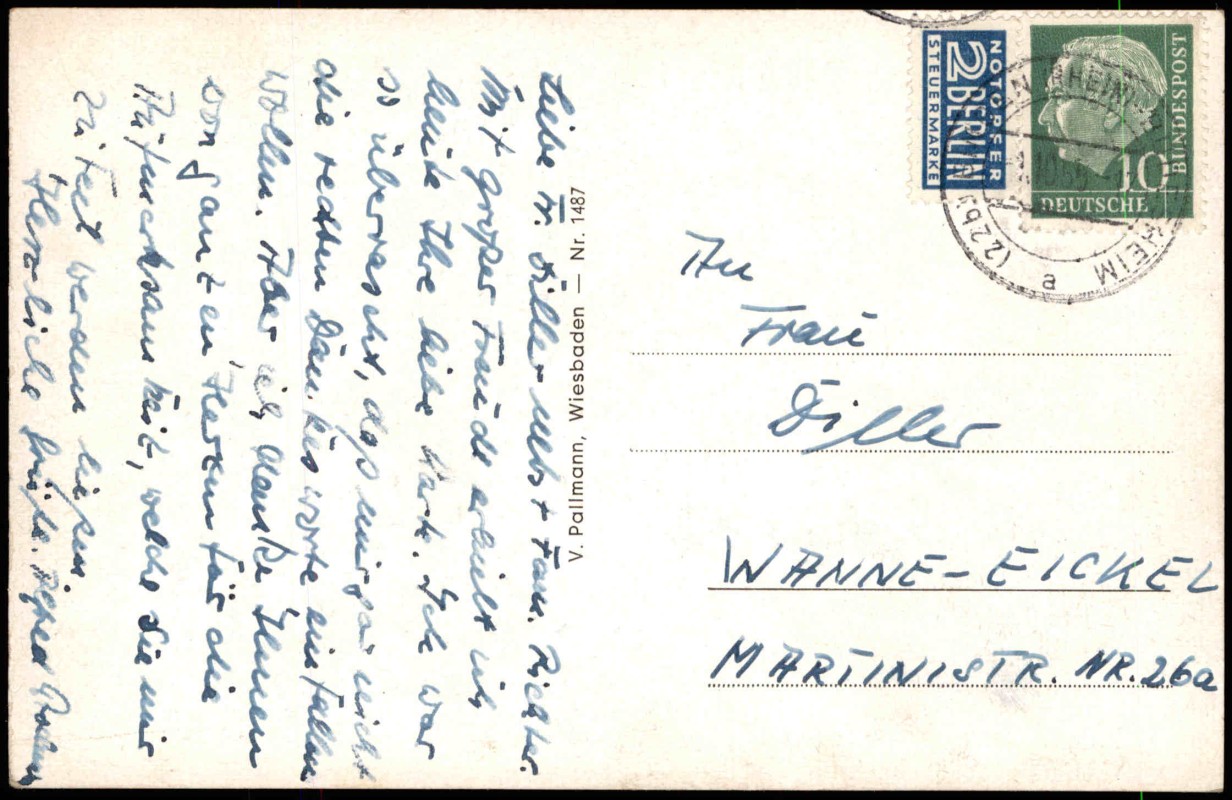 Liebe Fr. Diller nebst Fam. Richter.
Mit großer Freude erhielt ich
heute Ihre liebe Karte. Ich war
so überrascht, daß mir gar nicht
die rechten Dankesworte einfallen
wollen. Aber ich danke Ihnen
von ganzen Herzen für die
Aufmerksamkeit, welche Sie mir
zuteil werden ließen
Herzliche Grüße.
V. Pallmann, Wiesbaden — Nr. 1487
NOTOPFER
2 BERLIN
STEUERMARKE
10
DEUTSCHE
BUNDESPOST
(22b)
HEIM
a
An
Frau
Diller
WANNE-EICKEL
MARTINISTR. NR. 26a